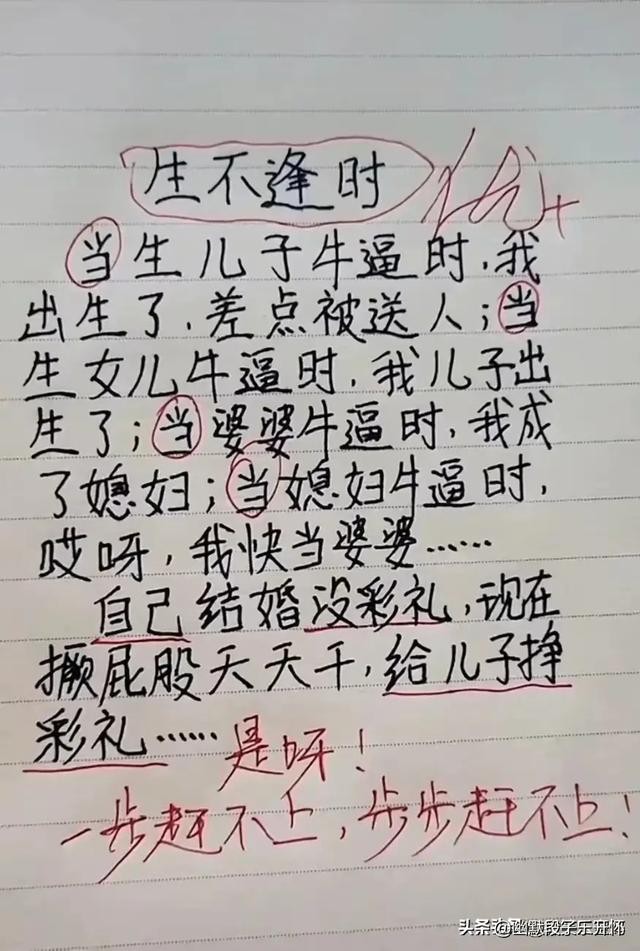 生不逢时
优+
当生儿子牛逼时，我
出生了，差点被送人；当
生女儿牛逼时，我儿子出
生了；当婆婆牛逼时，我成
了媳妇；当媳妇牛逼时，
哎呀，我快当婆婆……
自己结婚没彩礼，现在
撅屁股天天干，给儿子挣
彩礼……是呀！
一步赶不上，步步赶不上！
头条 @幽默段子乐开怀